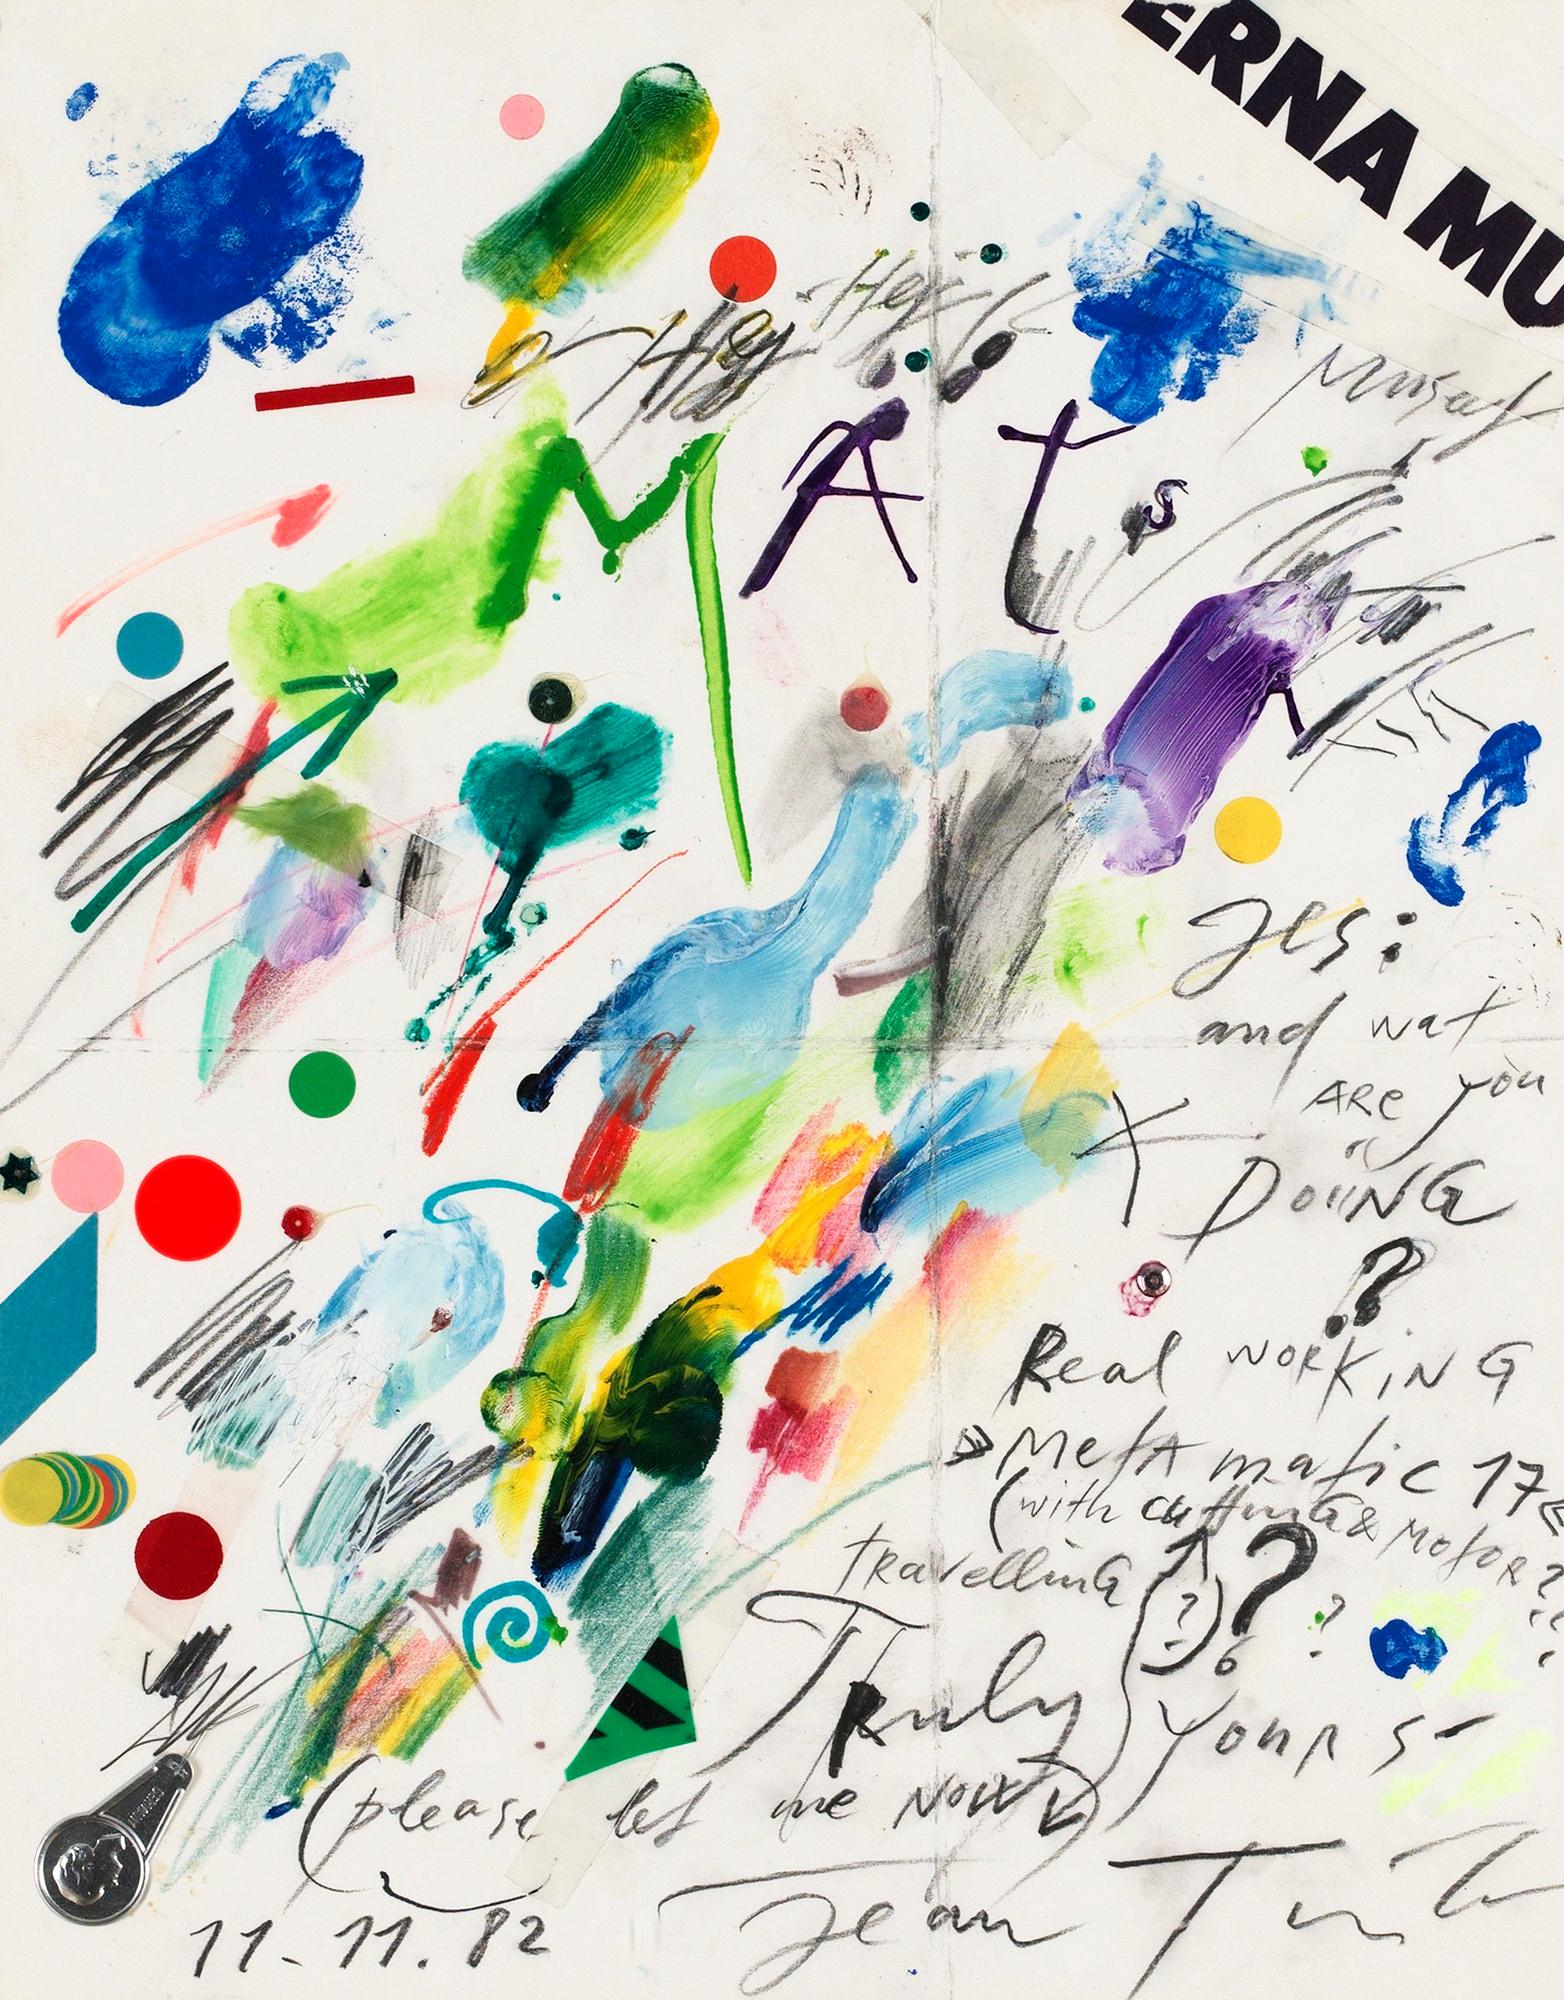 ERNA MU
Hej
or Hej
MATs
Yes:
and wat
ARe you
DoiiNG
?
Real WORKiNG
MetA matic 17
(with cuttinG & MotoR ??
travellinG (?) ? ?
Truly YouRs
(please let me NoW)
11-11.82
Jean Tin